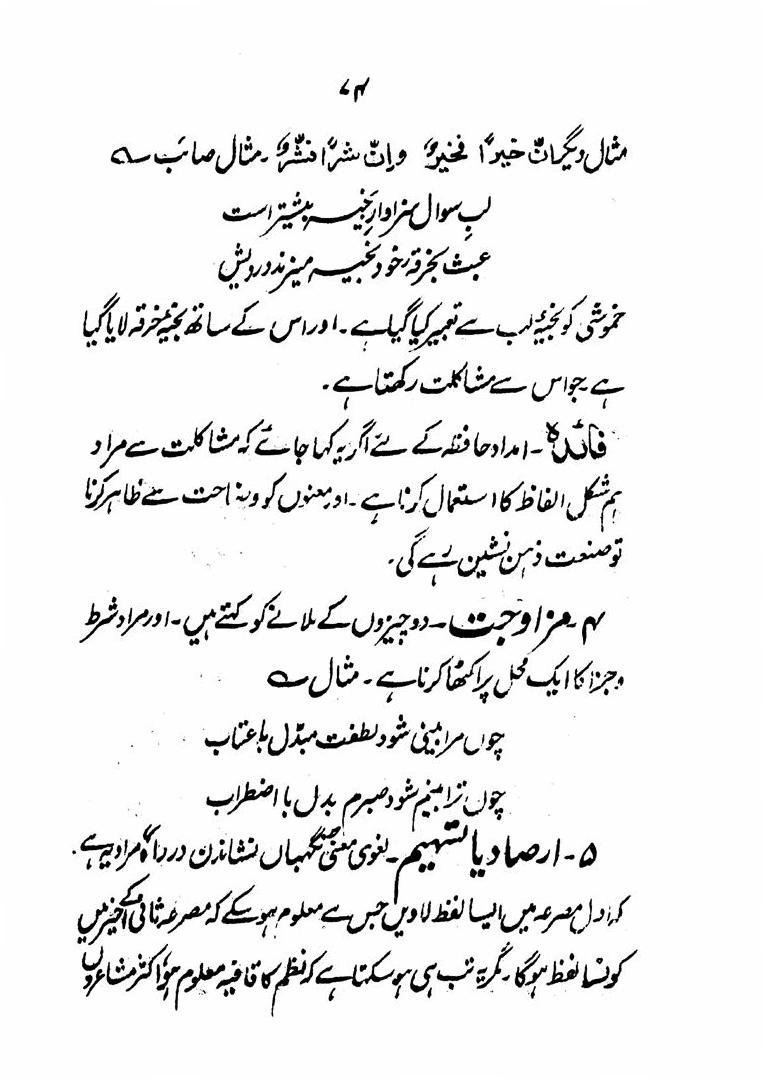 ۷۴
مثال دیگر ان خیراً فخیرٌ وان شرّاً فشرٌّ۔ مثال صائب ؎
لبِ سوال سزاوارِ بخیہ بیشتر است
عبث بخرقہ خود بخیہ میزند درویش
خموشی کو بخیۂ لب سے تعبیر کیا گیا ہے۔ اور اس کے ساتھ بخیۂ خرقہ لایا گیا
ہے جو اس سے مشاکلت رکھتا ہے۔
فائدہ۔ امداد حافظہ کے لئے اگر یہ کہا جائے کہ مشاکلت سے مراد
ہم شکل الفاظ کا استعمال کرنا ہے۔ اور معنوں کو وضاحت سے ظاہر کرنا
تو صنعت ذہن نشین رہے گی۔
۴۔ مزاوجت۔ دو چیزوں کے ملانے کو کہتے ہیں۔ اور مراد شرط
و جزا کا ایک محل پر اکٹھا کرنا ہے۔ مثال ؎
چوں مرا بینی شود لطفت مبدّل با عتاب
چوں ترا بینم شود صبرم بدل با اضطراب
۵۔ ارصاد یا تسہیم۔ لغوی معنی نگہباں نشاندن در راہ مراد یہ ہے۔
کہ اول مصرعہ میں ایسا لفظ لاویں جس سے معلوم ہو سکے کہ مصرعہ ثانی کے اخیر میں
کونسا لفظ ہوگا۔ مگر یہ تب ہی ہو سکتا ہے کہ نظم کا قافیہ معلوم ہو اکثر مشاعروں